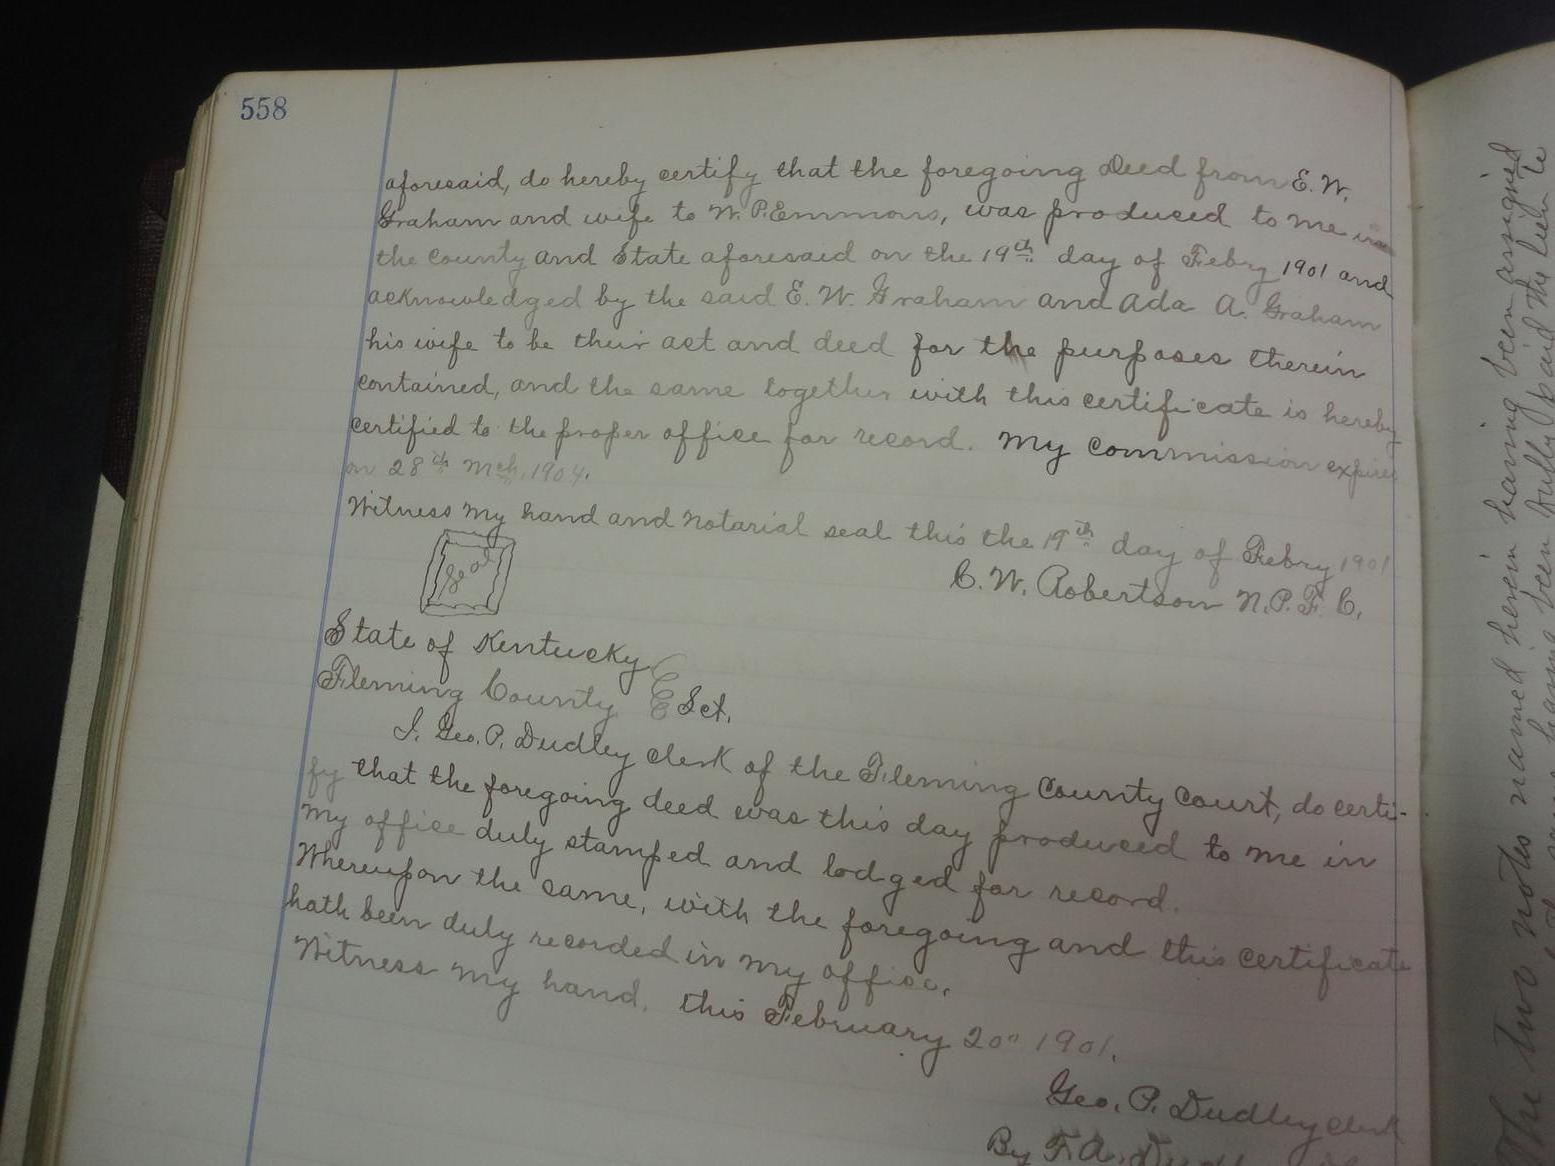 558
aforesaid, do hereby certify that the foregoing deed from E. W.
Graham and wife to W. P. Emmons, was produced to me in
the county and State aforesaid on the 19th day of Febry 1901 and
acknowledged by the said E. W. Graham and Ada A. Graham
his wife to be their act and deed for the purposes therein
contained, and the same together with this certificate is hereby
certified to the proper office for record. My commission expires
on 28th Mch. 1904.
Witness my hand and notarial seal this the 19th day of Febry 1901
Seal
C. W. Robertson N. P. F. C.
State of Kentucky
Fleming County Sct.
I, Geo. P. Dudley clerk of the Fleming County Court, do certi-
fy that the foregoing deed was this day produced to me in
my office duly stamped and lodged for record.
Whereupon the same, with the foregoing and this certificate
hath been duly recorded in my office.
Witness my hand, this February 20" 1901.
Geo. P. Dudley clerk
By F. A. Dudley
The two notes named herein having been assigned
having been fully paid the lien